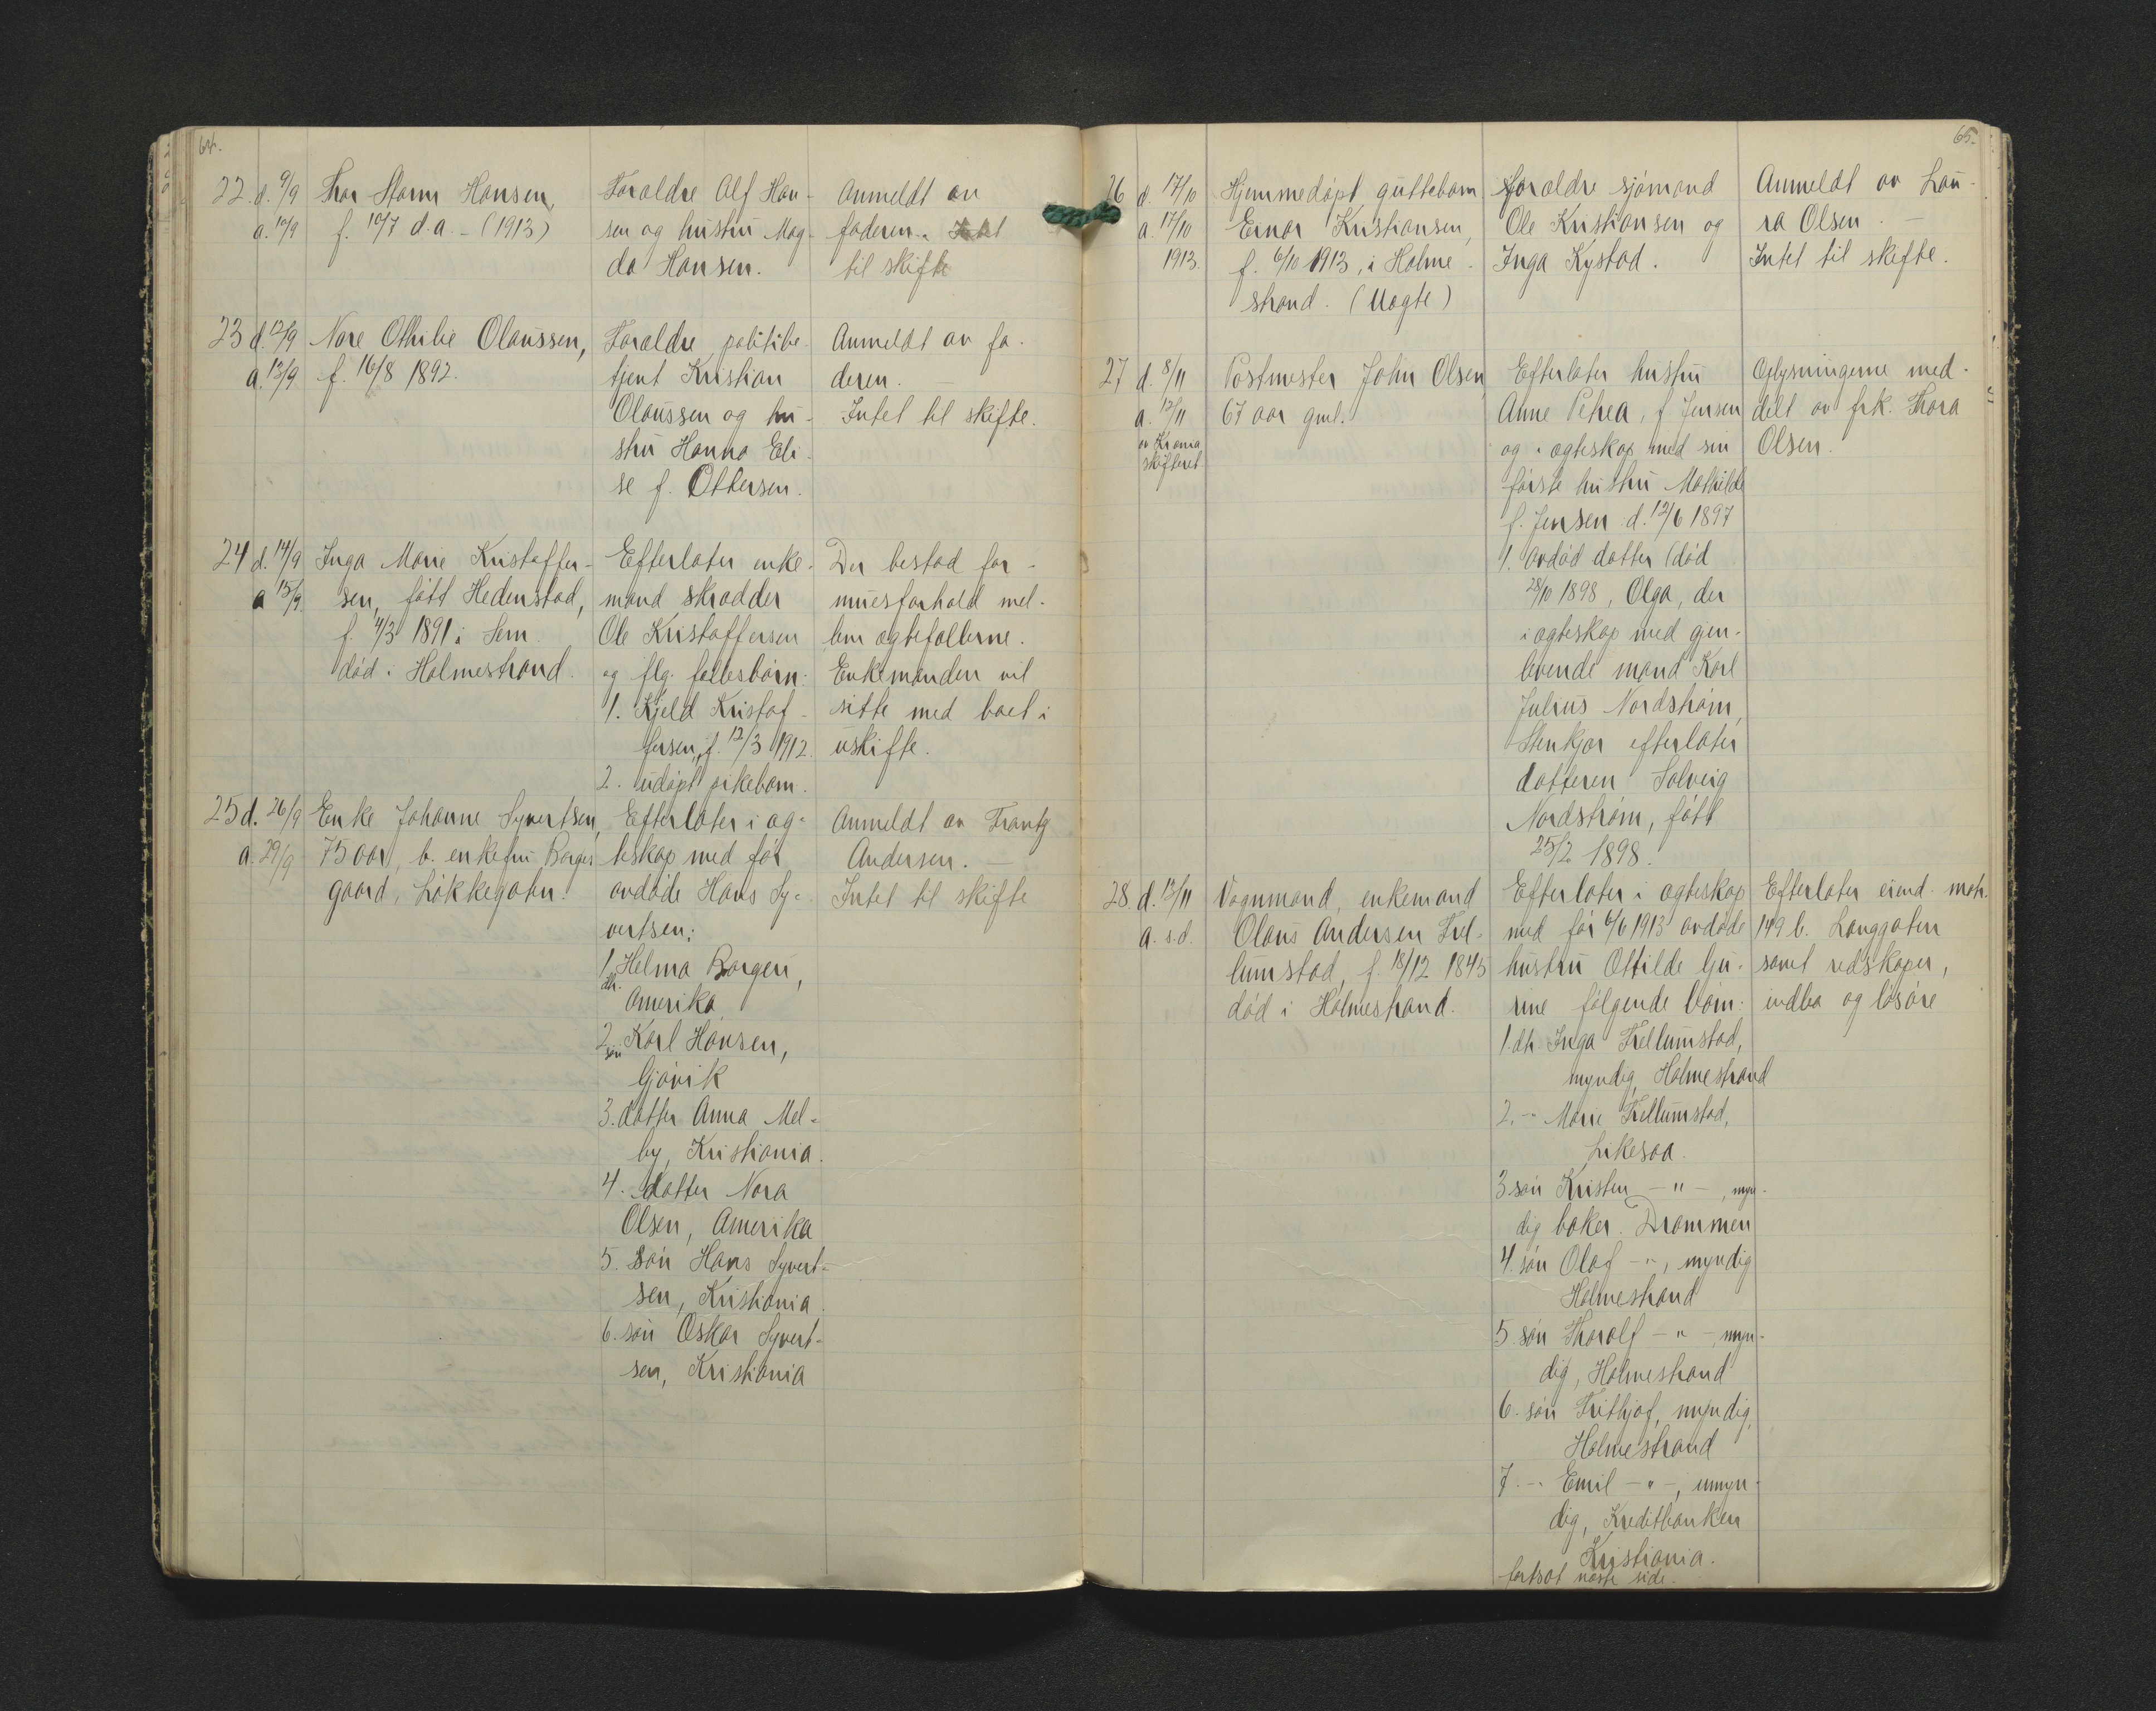 64.
22. d. 9/9 Thor Storm Hansen,
a. 10/9 f. 10/7 d.a. - (1913)
Forældre Alf Han-
sen og hustru Mag-
da Hansen.
Anmeldt av
faderen. Intet
til skifte
23 d. 12/9 Nore Othilie Olaussen,
a. 13/9 f. 16/8 1892.
Forældre politibe-
tjent Kristian
Olaussen og hu-
stru Hanna Eli-
se f. Ottersen.
Anmeldt av fa-
deren. —
Intet til skifte.
24 d. 14/9 Inga Marie Kristoffer-
a 15/9. sen, født Hedenstad,
f. 4/3 1891 i Sem.
død i Holmestrand.
Efterlater enke-
mand skrædder
Ole Kristoffersen
og flg. fællesbørn:
1. Kjeld Kristof-
fersen, f. 12/3 1912.
2. udøpt pikebarn.
Der bestod for-
muesforhold mel-
lem ægtefollerne.
Enkemanden vil
sitte med boet i
uskifte.
25 d. 26/9 Enke Johanne Syvertsen,
a. 29/9 75 aar, b. enkefru Borger
gaard, Løkkegaten.
Efterlater i æg-
teskap med før
avdøde Hans Sy-
vertsen:
1. Helma Borgen,
dtr.
Amerika
2. Karl Hansen,
søn
Gjøvik
3. datter Anna Mel-
by, Kristiania.
4. datter Nora
Olsen, Amerika
5. søn Hans Syvert-
sen, Kristiania.
6. søn Oskar Syvert-
sen, Kristiania
Anmeldt av Frantz
Andersen. —
Intet til skifte
65.
26 d. 17/10 Hjemmedøpt guttebarn
a. 17/10 Einar Kristiansen,
1913. f. 6/10 1913, i Holme-
strand. (Uægte)
Forældre sjømand
Ole Kristiansen og
Inga Kystad.
Anmeldt av Lau-
ra Olsen. —
Intet til skifte.
27 d. 8/11 Postmester John Olsen,
a. 12/11 67 aar gml.
av Kr.ania
skifteret
Efterlater hustru
Anne Petrea, f. Jensen
og i ægteskap med sin
første hustru Mathilde
f. Jensen d. 12/6 1897
1. avdød datter (død
28/10 1898, Olga, der
i ægteskap med gjen-
levende mand Karl
Julius Nordstrøm,
Stenkjær efterlater
datteren Solveig
Nordstrøm, født
25/2 1898.
Oplysningerne med-
delt av frk. Thora
Olsen.
28. d. 13/11 Vognmand, enkemand
a. s.d. Olaus Andersen Trel-
lumstad, f. 18/12 1845
død i Holmestrand.
Efterlater i ægteskap
med før 6/6 1913 avdøde
hustru Ottilde Gu-
rine følgende børn:
1. dtr Inga Trellumstad,
myndig, Holmestrand
2. -" Marie Trellumstad,
Likesaa.
3 søn Kristen -"-, myn-
dig baker. Drammen
4. søn Olaf -"-, myndig
Holmestrand
5. søn Thorolf -"-, myn-
dig, Holmestrand
6. søn Fritjof, myndig,
Holmestrand
7. -" Emil -"-, umyn-
dig, Kreditbanken
Kristiania.
fortsat næste side.
Efterlater eiend. matr.
149 b. Langgaten
samt redskaper,
indbo og løsøre